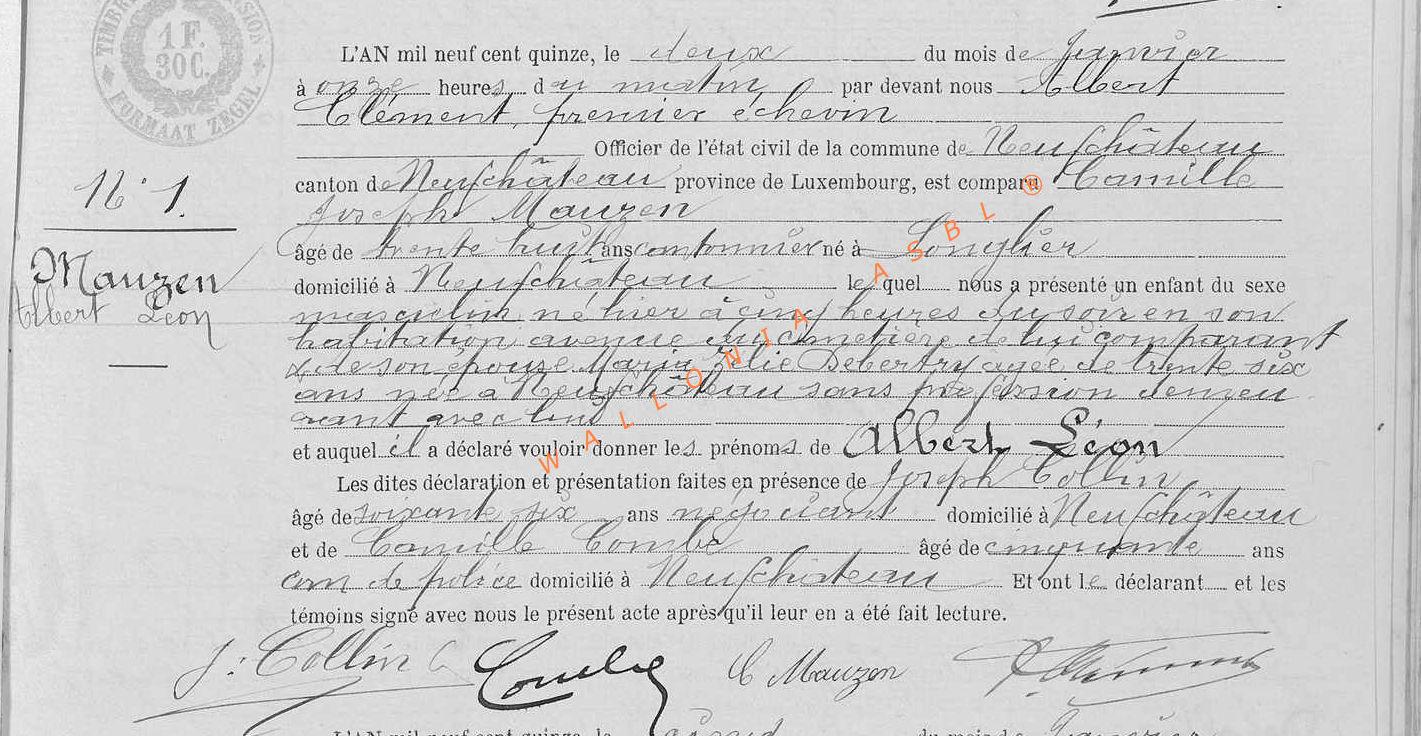 TIMBRE
1 F.
30 C.
FORMAAT ZEGEL
L'AN mil neuf cent quinze, le deux du mois de Janvier
à onze heures du matin, par devant nous Albert
Clément, premier échevin
Officier de l'état civil de la commune de Neufchâteau
canton de Neufchâteau province de Luxembourg, est comparu Camille
Joseph Mauzen
âgé de trente huit ans cantonnier né à Longlier
domicilié à Neufchâteau lequel nous a présenté un enfant du sexe
masculin né hier à cinq heures du soir en son
habitation avenue du cimetière de lui comparant
& de son épouse Maria Zélie Debertry agée de trente six
ans née à Neufchâteau sans profession demeu
rant avec lui
et auquel il a déclaré vouloir donner les prénoms de Albert Léon
Les dites déclaration et présentation faites en présence de Joseph Collin
âgé de soixante six ans négociant domicilié à Neufchâteau
et de Camille Combe âgé de cinquante ans
com de police domicilié à Neufchateau Et ont le déclarant et les
témoins signé avec nous le présent acte après qu'il leur en a été fait lecture.
J. Collin C Combe C Mauzen
N° 1.
Mauzen
Albert Léon
WALLONIA ASBL ®
L'AN mil neuf cent quinze, le cinq du mois de Janvier